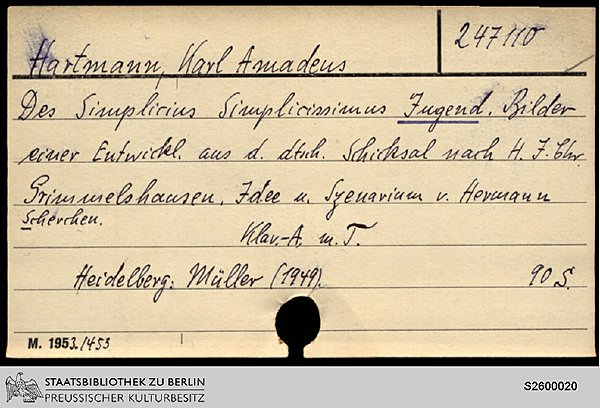 Hartmann, Karl Amadeus
247110
Des Simplicius Simplicissimus Jugend. Bilder
einer Entwickl. aus d. dtsch. Schicksal nach H. J. Chr.
Grimmelshausen. Idee u. Szenarium v. Hermann
Scherchen.
Klav.-A. m. T.
Heidelberg: Müller (1949).
90 S.
M. 1953./453
STAATSBIBLIOTHEK ZU BERLIN
PREUSSISCHER KULTURBESITZ
S2600020